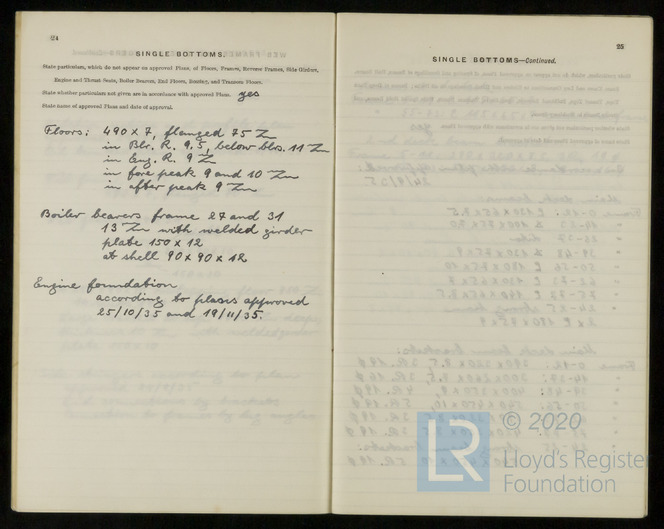 24
SINGLE BOTTOMS.
State particulars, which do not appear on approved Plans, of Floors, Frames, Reverse Frames, Side Girders,
Engine and Thrust Seats, Boiler Bearers, End Floors, Bossing, and Transom Floors.
State whether particulars not given are in accordance with approved Plans. yes
State name of approved Plans and date of approval.
Floors: 490 x 7, flanged 75
in Blr. R. 9.5, below blrs. 11
in Eng. R. 9
in fore peak 9 and 10
in after peak 9
Boiler bearers frame 27 and 31
13 with welded girder
plate 150 x 12
at shell 90 x 90 x 12
Engine foundation
according to plans approved
25/10/35 and 19/11/35.
25
SINGLE BOTTOMS—Continued.
LR © 2020
Lloyd's Register
Foundation